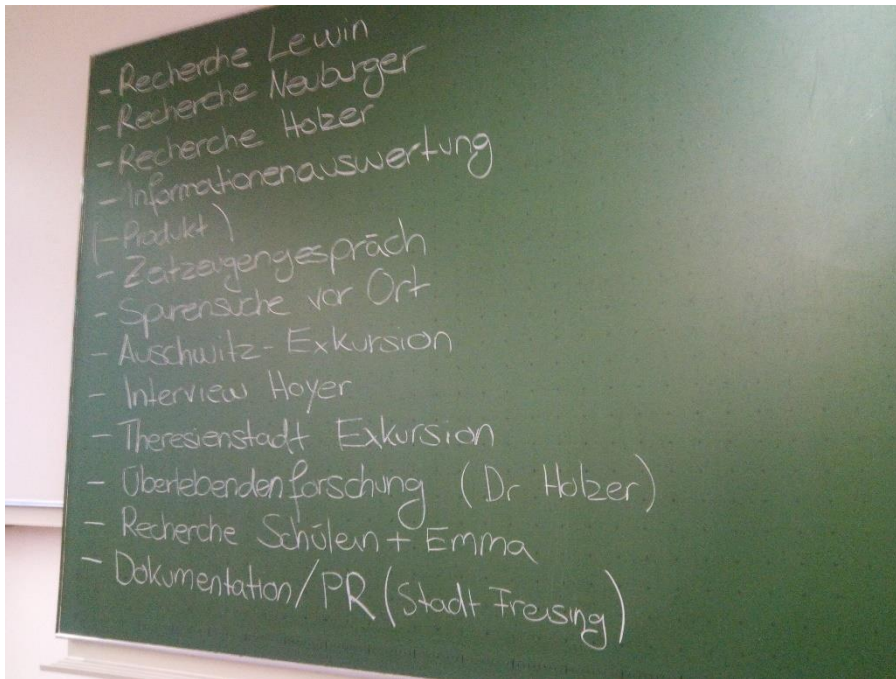 - Recherche Lewin
- Recherche Neuburger
- Recherche Holzer
- Informationenauswertung
(- Produkt)
- Zeitzeugengespräch
- Spurensuche vor Ort
- Auschwitz-Exkursion
- Interview Hoyer
- Theresienstadt Exkursion
- Überlebendenforschung (Dr Holzer)
- Recherche Schülein + Emma
- Dokumentation/PR (Stadt Freising)